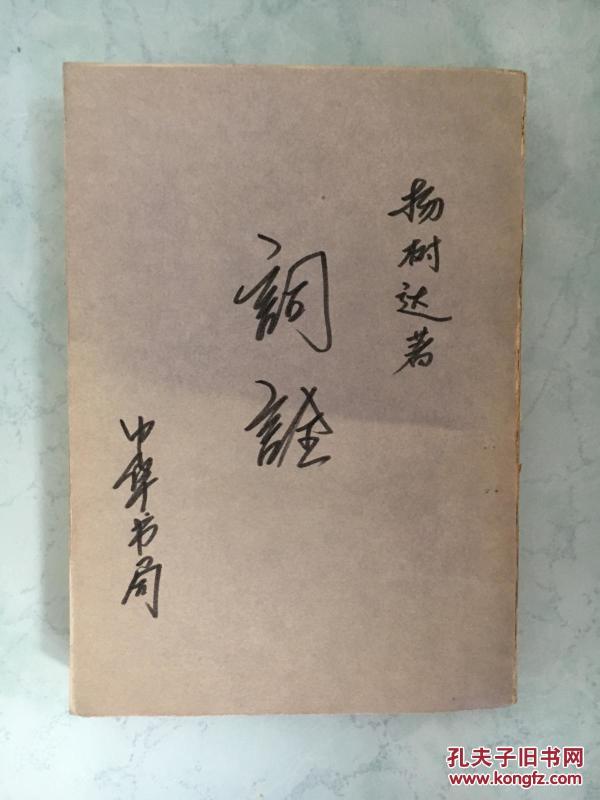 杨树达著
詞詮
中华书局
孔夫子旧书网
www.kongfz.com